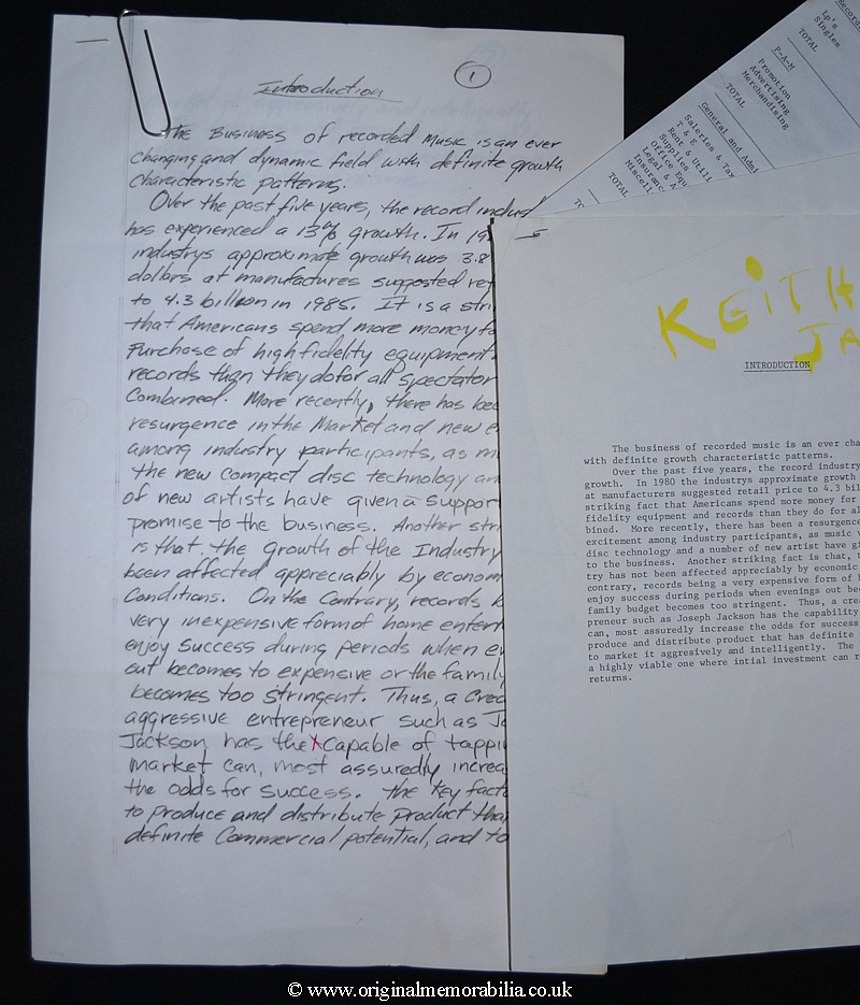 Introduction
1
The Business of recorded Music is an ever
changing and dynamic field with definite growth
characteristic patterns.
Over the past five years, the record indust
has experienced a 13% growth. In 19
industrys approximate growth was 3.8
dollars at manufactures suggested ret
to 4.3 billion in 1985. It is a stri
that Americans spend more money fo
Purchase of high fidelity equipment
records than they do for all spectator
Combined. More recently, there has bee
resurgence in the Market and new e
among industry participants, as m
the new compact disc technology an
of new artists have given a support
promise to the business. Another stri
is that, the growth of the Industry
been affected appreciably by econom
Conditions. On the Contrary, records b
very inexpensive form of home entert
enjoy success during periods when e
out becomes to expensive or the family
becomes too stringent. Thus, a Crea
aggressive entrepreneur such as Jo
Jackson has the x capable of tappi
market can, most assuredly increa
the odds for success. the key fact
to produce and distribute product tha
definite Commercial potential, and to
Record
Lp's
Singles
TOTAL
P-A-M
Promotion
Advertising
Merchandising
TOTAL
General and Admi
Saleries & Tax
T & E
Rent & Utili
Supplies
Office Equ
Legal & A
Insuranc
Miscell
TOTAL
TO
KEITH
JA
INTRODUCTION
The business of recorded music is an ever cha
with definite growth characteristic patterns.
Over the past five years, the record industry
growth. In 1980 the industrys approximate growth
at manufacturers suggested retail price to 4.3 bil
striking fact that Americans spend more money for
fidelity equipment and records than they do for al
bined. More recently, there has been a resurgence
excitement among industry participants, as music v
disc technology and a number of new artist have gi
to the business. Another striking fact is that, t
try has not been affected appreciably by economic
contrary, records being a very expensive form of
enjoy success during periods when evenings out be
family budget becomes too stringent. Thus, a crea
preneur such as Joseph Jackson has the capability
can, most assuredly increase the odds for success
produce and distribute product that has definite
to market it aggresively and intelligently. The
a highly viable one where intial investment can r
returns.
© www.originalmemorabilia.co.uk